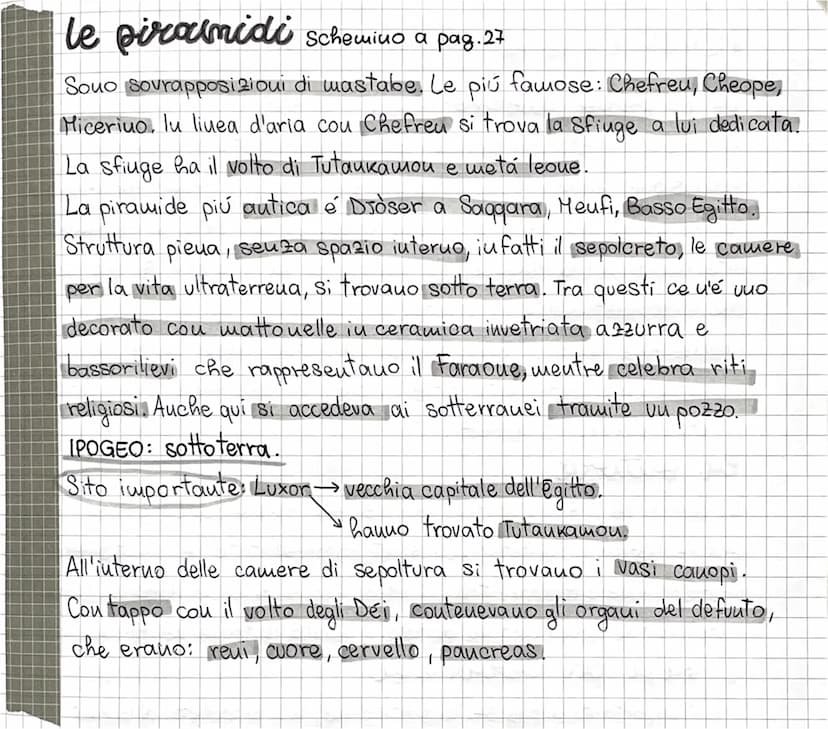 le piramidi schemino a pag.27
Sono sovrapposizioni di mastabe. Le piú famose: Chefren, Cheope,
Micerino. In linea d'aria con Chefren si trova la sfinge a lui dedicata.
La sfinge ha il volto di Tutankamon e metá leone.
La piramide piú antica é Djoser a Saqqara, Menfi, Basso Egitto.
Struttura piena, senza spazio interno, infatti il sepolcreto, le camere
per la vita ultraterrena, si trovano sotto terra. Tra questi ce n'é uno
decorato con mattonelle in ceramica invetriata azzurra e
bassorilievi che rappresentano il Faraone, mentre celebra riti
religiosi. Anche qui si accedeva ai sotterranei tramite un pozzo.
IPOGEO: sottoterra.
Sito importante: Luxon → vecchia capitale dell'Egitto.
hanno trovato Tutankamon.
All'interno delle camere di sepoltura si trovano i vasi canopi.
Con tappo con il volto degli Dei, contenevano gli organi del defunto,
che erano: reni, cuore, cervello, pancreas.